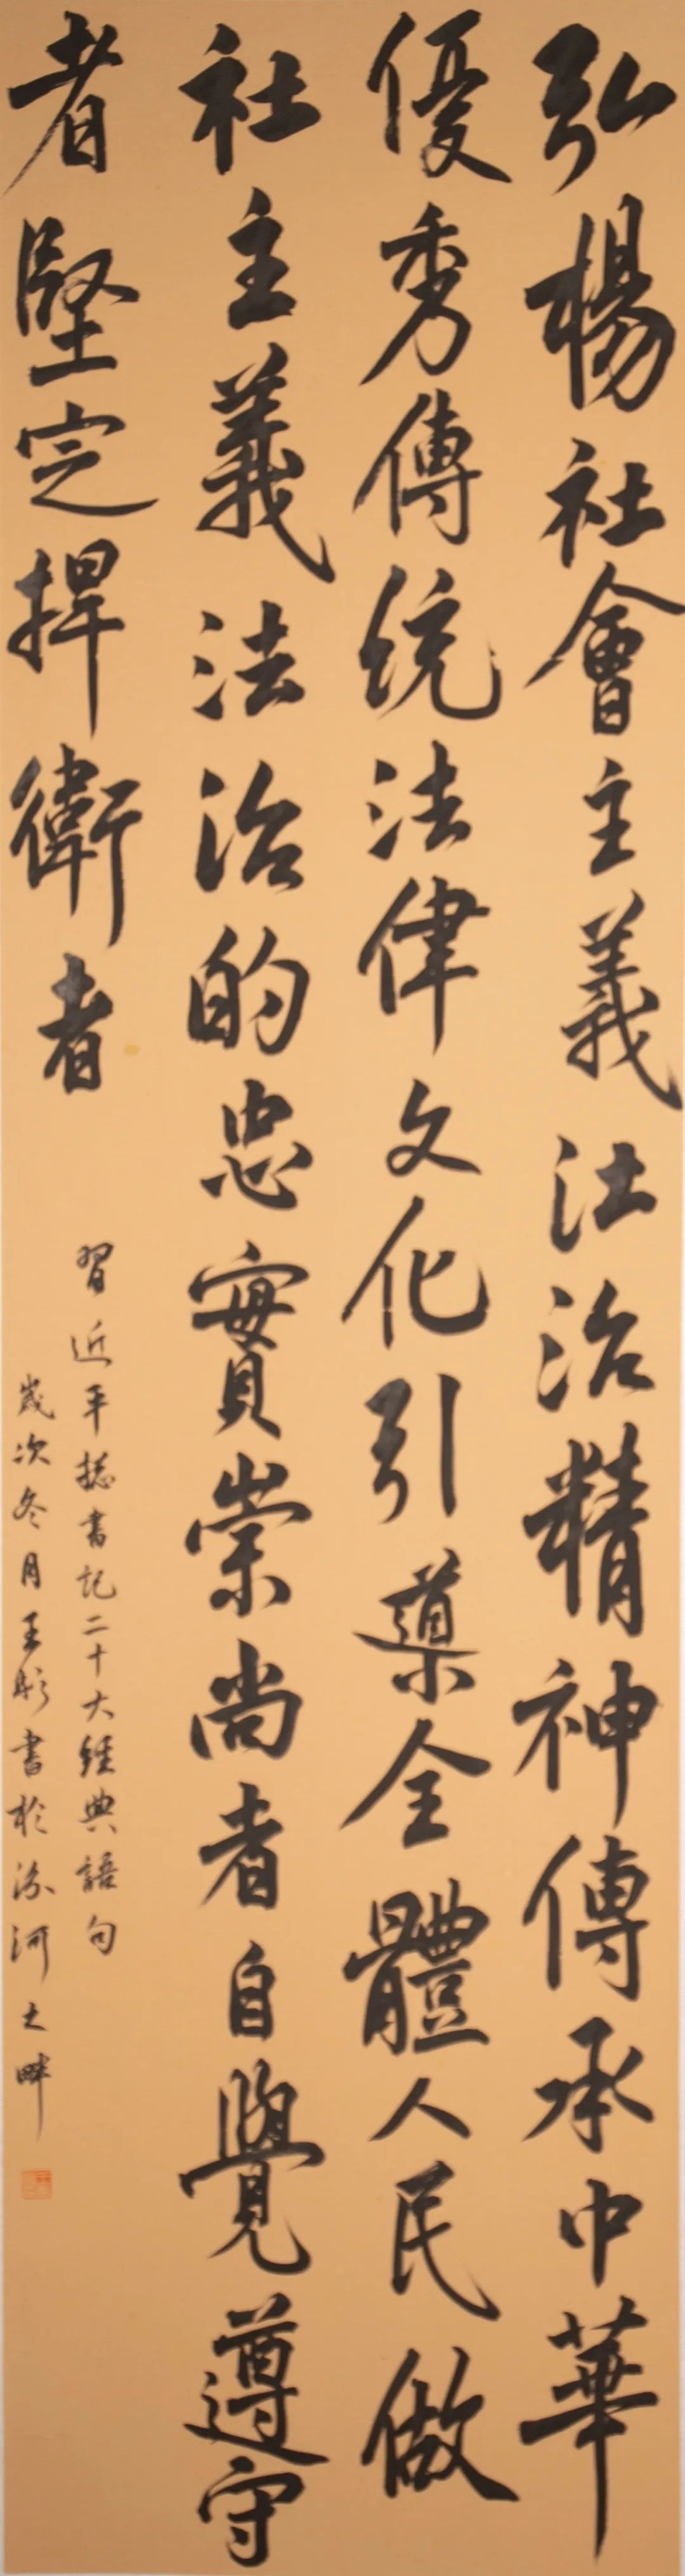 弘楊社會主義法治精神傳承中華
優秀傳統法律文化引導全體人民做
社主義法治的忠實崇尚者自覺遵守
者堅定捍衛者
習近平總書記二十大經典語句
歲次冬月王彤書於汾河之畔